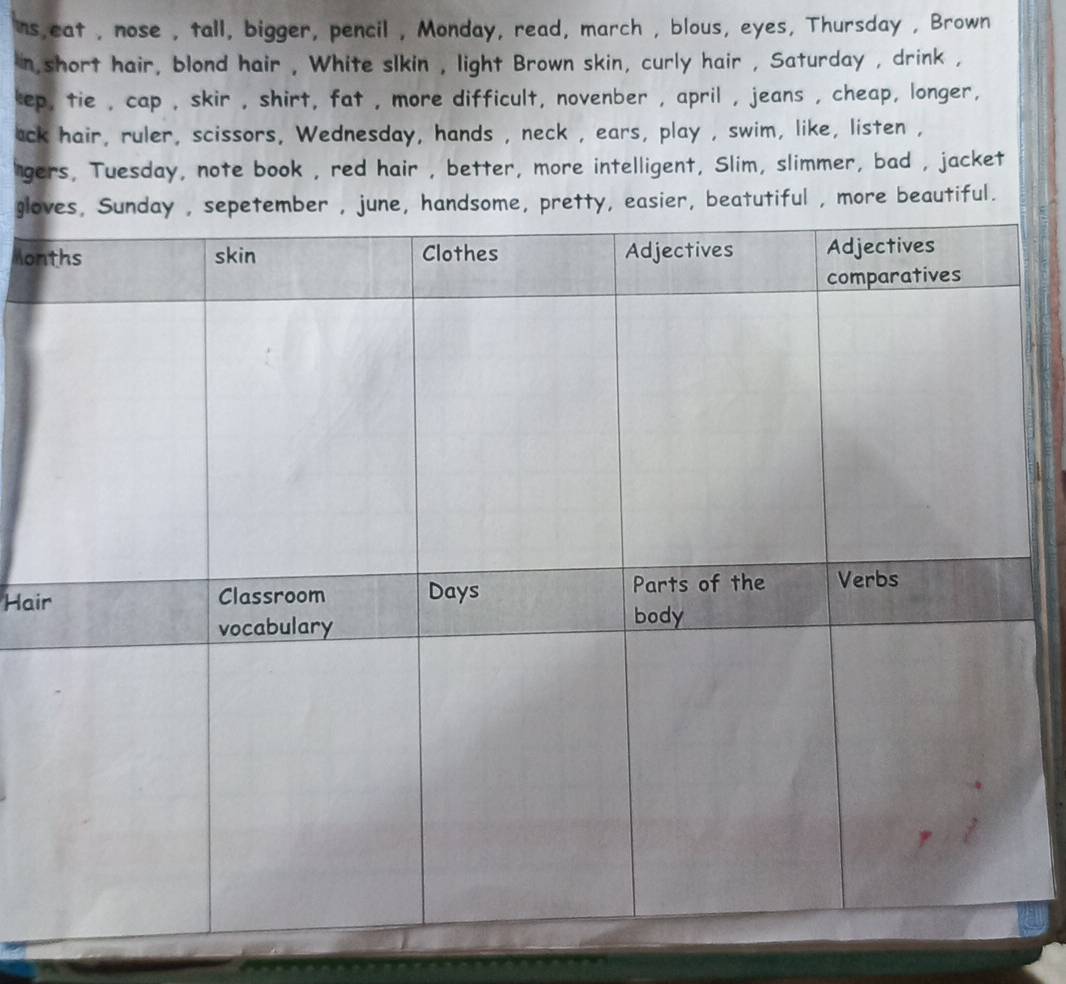 eat , nose , tall, bigger, pencil , Monday, read, march , blous, eyes, Thursday , Brown
short hair, blond hair , White slkin , light Brown skin, curly hair , Saturday , drink ,
tie , cap , skir , shirt, fat , more difficult, novenber , april , jeans , cheap, longer,
hair, ruler, scissors, Wednesday, hands , neck , ears, play , swim, like, listen ,
Tuesday, note book , red hair , better, more intelligent, Slim, slimmer, bad , jacket
gloves, Sunday , sepetember , june, handsome, pretty, easier, beatutiful , more beautiful.
Months skin Clothes Adjectives Adjectives
comparatives
Hair Classroom Days Parts of the Verbs
vocabulary body